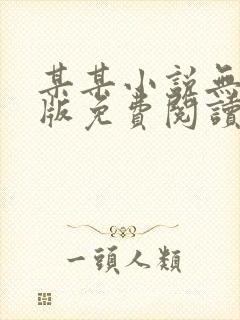 某某小說無
版免費閱讀
一頭人類